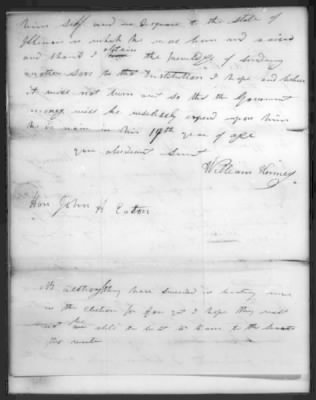 him self and no disgrace to the State of
Illinois in which he was born and raised
and should I obtain the privilege of sending
another son to that Institution I hope and believe
it will not turn out so that the Government
money will be uselessly expend upon him
he is now in his 19th year of age
your obedient Servt
William Kinney
Hon John H Eaton
NB altho they have succeeded in beating me
in the election for Gov yet I hope they will
not be able to beat us time to the
this winter